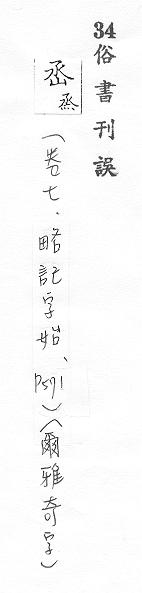 34俗書刊誤
烝 烝
(卷七．略記字始、P571)(爾雅奇字)